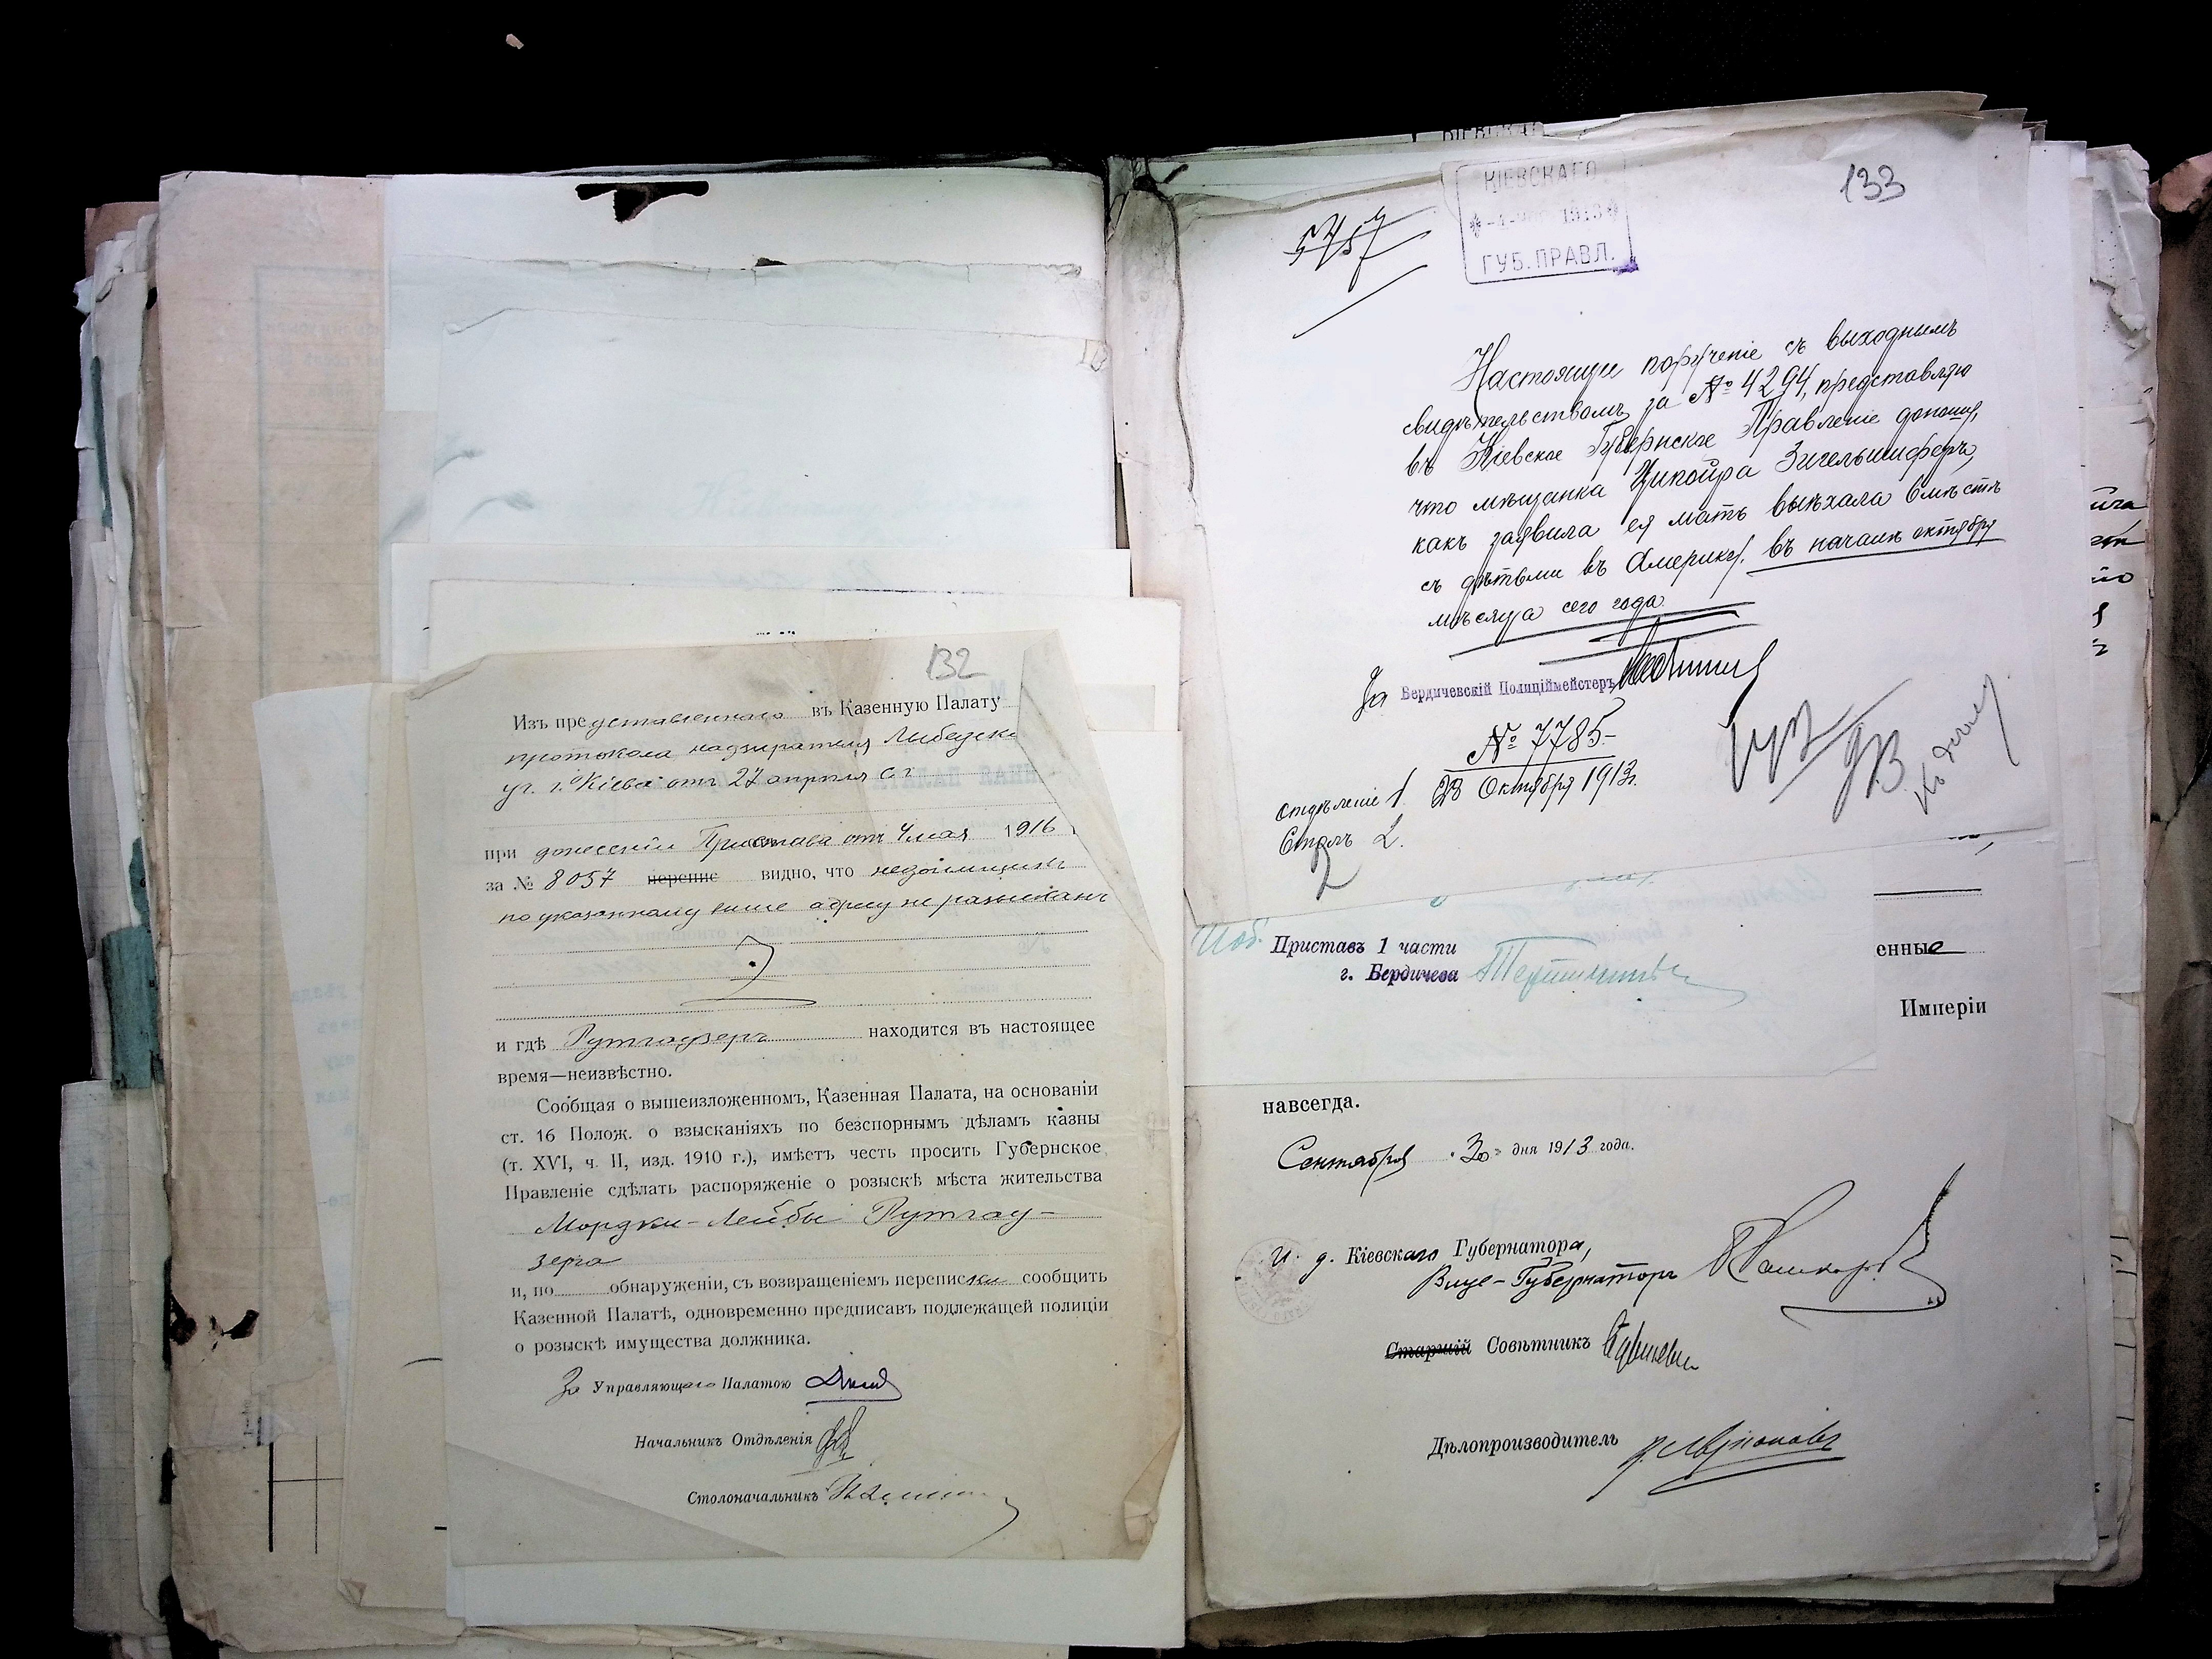 132
Изъ представленнаго въ Казенную Палату
протокола надзирателя Лыбедск
уч. г. Кіева отъ 27 апрѣля с. г.
при донесеніи Пристава отъ 4 мая 1916
за № 8057 перепис видно, что недоимщикъ
по указанному выше адресу не разысканъ
и гдѣ Рутгаузеръ находится въ настоящее
время—неизвѣстно.
Сообщая о вышеизложенномъ, Казенная Палата, на основаніи
ст. 16 Полож. о взысканіяхъ по безспорнымъ дѣламъ казны
(т. XVI, ч. II, изд. 1910 г.), имѣетъ честь просить Губернское
Правленіе сдѣлать распоряженіе о розыскѣ мѣста жительства
Мордки-Лейбы Рутгау-
зера
и, по обнаруженіи, съ возвращеніемъ переписки сообщить
Казенной Палатѣ, одновременно предписавъ подлежащей полиціи
о розыскѣ имущества должника.
За Управляющаго Палатою
Начальникъ Отдѣленія
Столоначальникъ
133
5757
КІЕВСКАГО
1913
ГУБ. ПРАВЛ.
Настоящее порученіе съ выходнымъ
свидѣтельствомъ за № 4294, представляю
въ Кіевское Губернское Правленіе доношу,
что мѣщанка Ципойра Зигельшиферъ,
какъ заявила ея мать выѣхала вмѣстѣ
съ дѣтьми въ Америку. въ началѣ октября
мѣсяца сего года.
За Бердичевскій Полиціймейстеръ
№ 7785.
28 Октября 1913г.
отдѣленіе 1.
Столъ 2.
2
Приставъ 1 части
г. Бердичева
енные
Имперіи
навсегда.
Сентября 30 дня 1913 года.
И. д. Кіевскаго Губернатора,
Вице-Губернаторъ
Старшій Совѣтникъ
Дѣлопроизводитель